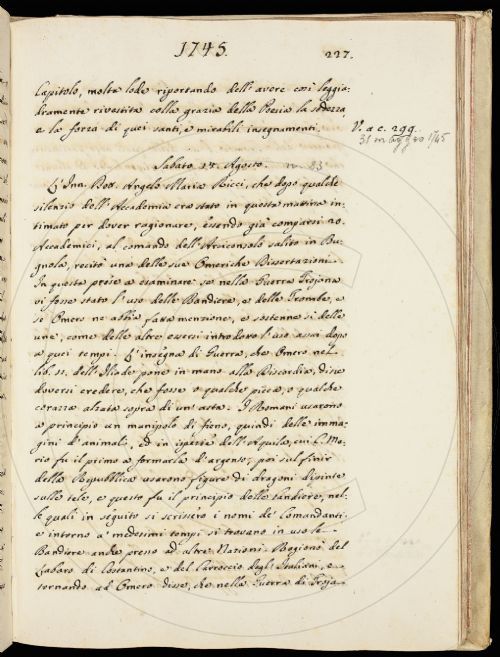 1745.
227.
Capitolo, molta lode riportando dell'avere così leggia-
dramente rivestita colla grazia della Poesia la sodezza,
e la forza di quei santi, e mirabili insegnamenti.
V. a c. 299.
31 maggio 1745
Sabato 14. Agosto. n. 83
L'Inn. Bott. Angelo Maria Ricci, che dopo qualche
silenzio dell'Accademia era stato in questa mattina in-
timato per dover ragionare, essendo già comparsi 20.
Accademici, al comando dell'Arciconsolo salito in Bu-
gnola, recitò una delle sue Omeriche Dissertazioni.
In questa prese a esaminare se nella Guerra Trojana
vi fosse stato l'uso delle Bandiere, e delle Trombe, e
se Omero ne abbia fatta menzione, e sostenne sì delle
une, come delle altre essersi introdotto l'uso assai dopo
a quei tempi. L'insegna di Guerra, che Omero nel
lib. 11. dell'Iliade pone in mano alla Discordia, disse
doversi credere, che fosse o qualche picca, o qualche
corazza alzata sopra di un'asta. I Romani usarono
a principio un manipolo di fieno, quindi delle imma-
gini d'animali, ed in ispezie dell'Aquila, cui C. Ma-
rio fu il primo a formarla d'argento; poi sul finir
della Repubblica usarono figure di dragoni dipinte
sulle tele, e questo fu il principio delle bandiere, nel-
le quali in seguito si scrissero i nomi de' Comandanti.
e intorno a' medesimi tempi si trovano in uso le
Bandiere anche presso ad altre Nazioni. Ragionò del
Labaro di Costantino, e del Carroccio degl'Italiani, e
tornando ad Omero disse, che nella Guerra di Troja